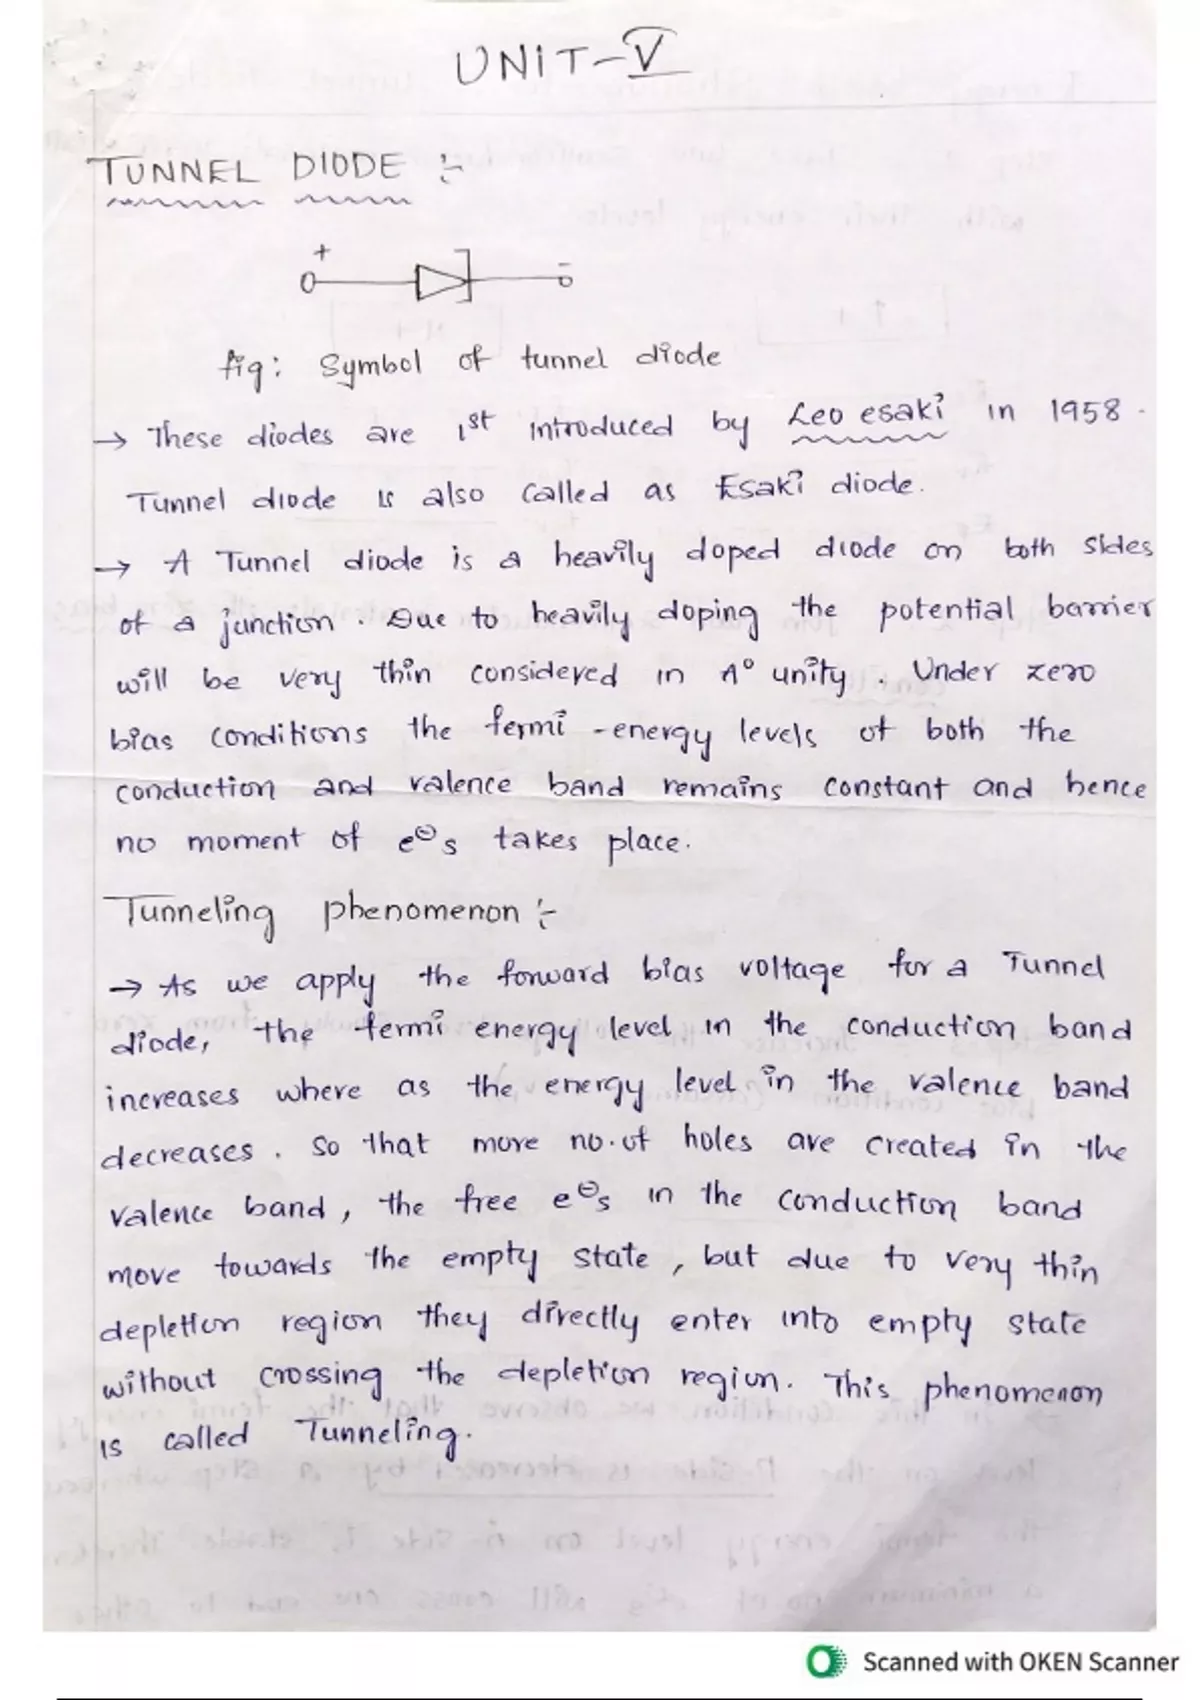 UNIT-V
TUNNEL DIODE :-
+ -
fig: Symbol of tunnel diode
→ These diodes are 1st introduced by Leo esaki in 1958.
Tunnel diode is also called as Esaki diode.
→ A Tunnel diode is a heavily doped diode on both sides
of a junction. Due to heavily doping the potential barrier
will be very thin considered in A° unity. Under zero
bias conditions the fermi-energy levels of both the
conduction and valence band remains constant and hence
no moment of e⊖s takes place.
Tunneling phenomenon :-
→ As we apply the forward bias voltage for a Tunnel
diode, the fermi energy level in the conduction band
increases where as the energy level in the valence band
decreases. So that more no. of holes are created in the
valence band, the free e⊖s in the conduction band
move towards the empty state, but due to very thin
depletion region they directly enter into empty state
without crossing the depletion region. This phenomenon
is called Tunneling.
Scanned with OKEN Scanner